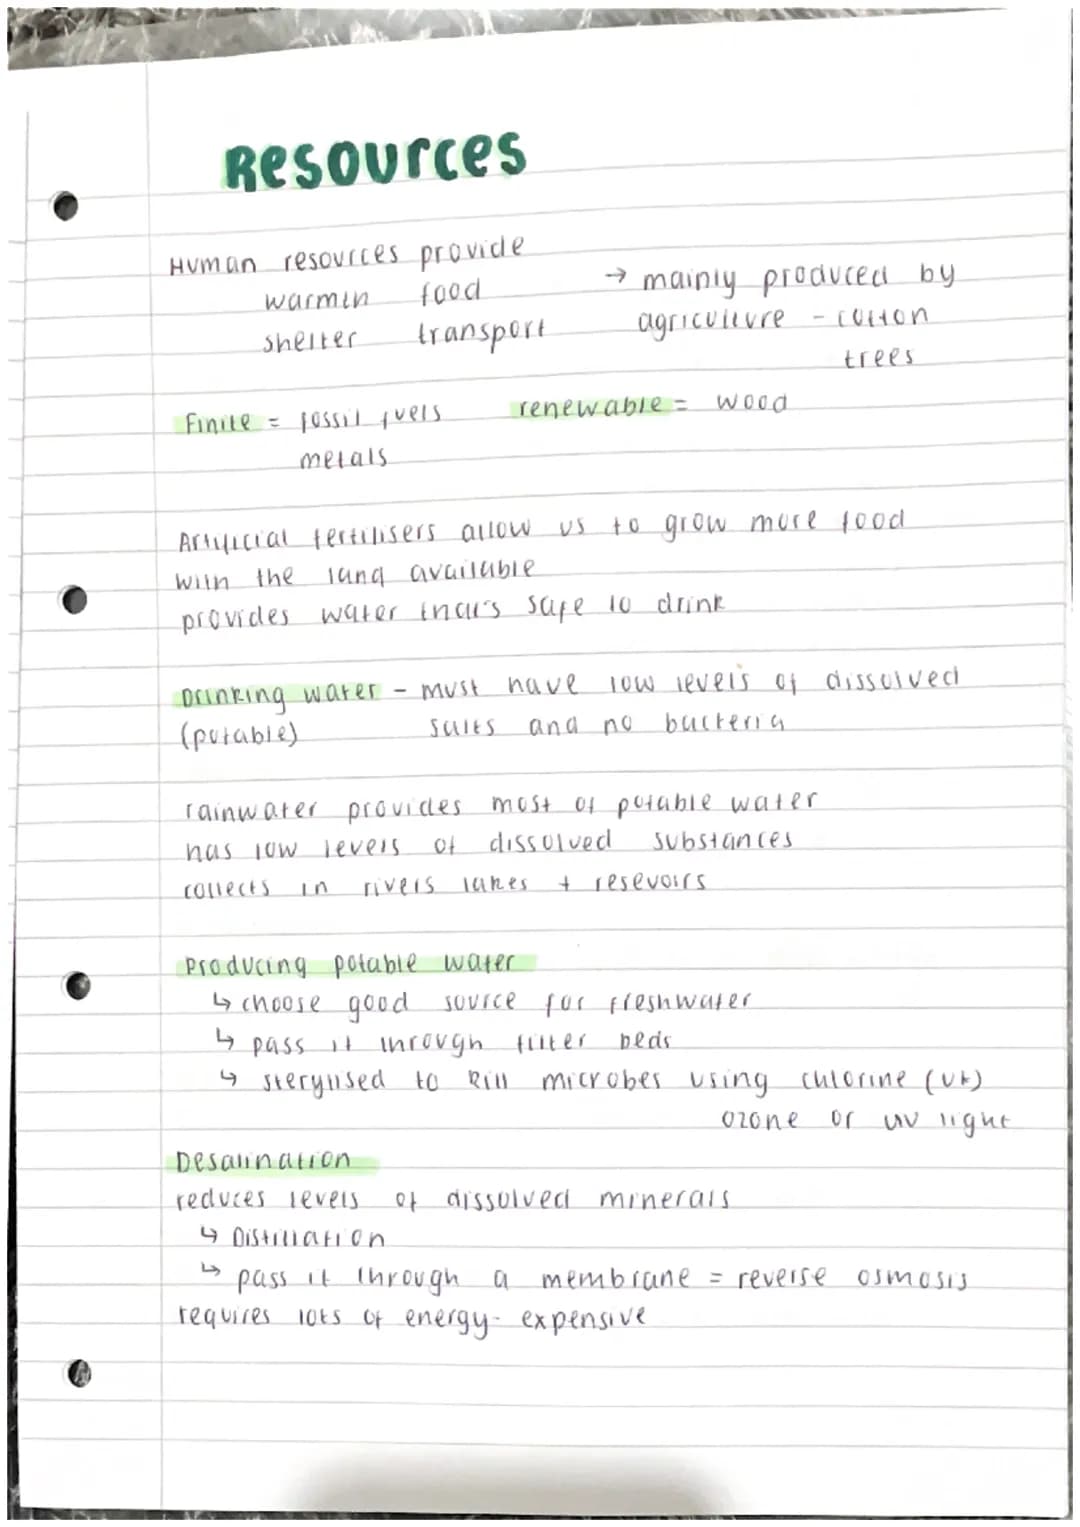 Resources
Human resources provide
warmth food → mainly produced by
shelter transport agriculture - cotton
trees
Finite = fossil fuels renewable = wood
metals
Artificial fertilisers allow us to grow more food
with the land available
provides water that's safe to drink
Drinking water - must have low levels of dissolved
(potable) salts and no bacteria
rainwater provides most of potable water
has low levels of dissolved substances
collects in rivers lakes + resevoirs
Producing potable water
↳ choose good source for freshwater
↳ pass it through filter beds
↳ sterylised to kill microbes using chlorine (UK)
ozone or uv light
Desalination
reduces levels of dissolved minerals
↳ Distillation
↳ pass it through a membrane = reverse osmosis
requires lots of energy - expensive